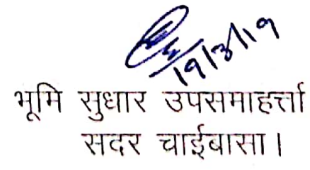 19/3/19
भूमि सुधार उपसमाहर्त्ता
सदर चाईबासा।